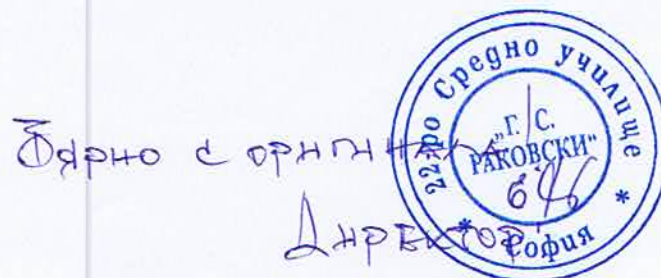 Вярно с оригинала
Директор:
22-ро Средно училище
„Г. С.
РАКОВСКИ“
* София *